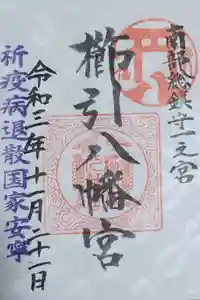 南部総鎮守一之宮
櫛引八幡宮
令和三年十一月二十一日
祈疫病退散国家安寧